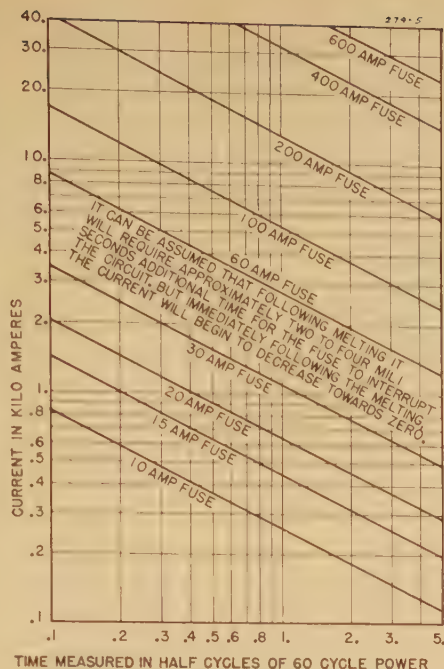 279-5
40.
30.
20.
10.
8.
6.
5.
4.
3.
2.
1.
.8
.6
.5
.4
.3
.2
.1
CURRENT IN KILO AMPERES
600 AMP FUSE
400 AMP FUSE
200 AMP FUSE
100 AMP FUSE
60 AMP FUSE
IT CAN BE ASSUMED THAT FOLLOWING MELTING IT
WILL REQUIRE APPROXIMATELY TWO TO FOUR MILI
SECONDS ADDITIONAL TIME FOR THE FUSE TO INTERRUPT
THE CIRCUIT. BUT IMMEDIATELY FOLLOWING THE MELTING,
THE CURRENT WILL BEGIN TO DECREASE TOWARDS ZERO.
30 AMP FUSE
20 AMP FUSE
15 AMP FUSE
10 AMP FUSE
.1 .2 .3 .4 .5 .6 .8 1. 2. 3. 5.
TIME MEASURED IN HALF CYCLES OF 60 CYCLE POWER